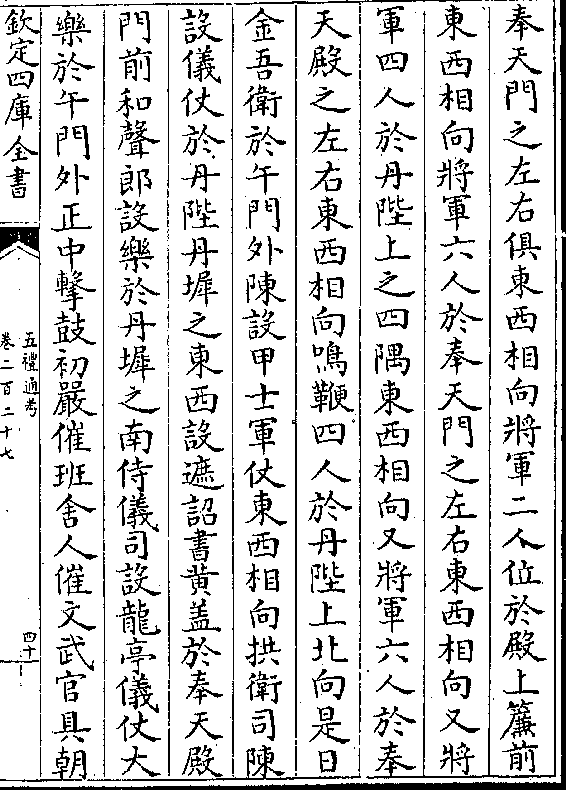 奉天門之左右俱東西相向將軍二人位於殿上簾前
東西相向將軍六人於奉天門之左右東西相向又將
軍四人於丹陛上之四隅東西相向又將軍六人於奉
天殿之左右東西相向鳴鞭四人於丹陛上北向是日
金吾衛於午門外陳設甲士軍仗東西相向拱衛司陳
設儀仗於丹陛丹墀之東西設遮詔書黄盖於奉天殿
門前和聲郎設樂於丹墀之南侍儀司設龍亭儀仗大
樂於午門外正中擊鼓初嚴催班舍人催文武官具朝
欽定四庫全書
五禮通考
卷二百二十七
四十